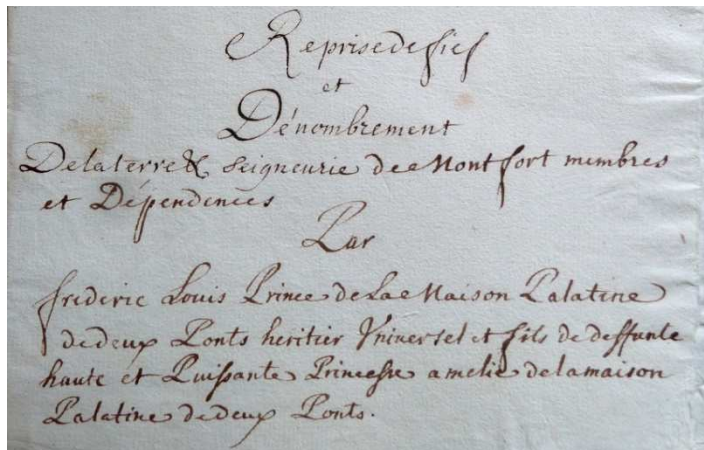 Reprise de fief
et
Dénombrement
De la terre & seigneurie de Montfort membres
et Dépendences
Par
frideric Louis Prince de La Maison Palatine
de deux Ponts heritier Vniversel et fils de deffunte
haute et Puissante Princesse amelie de la maison
Palatine de deux Ponts.